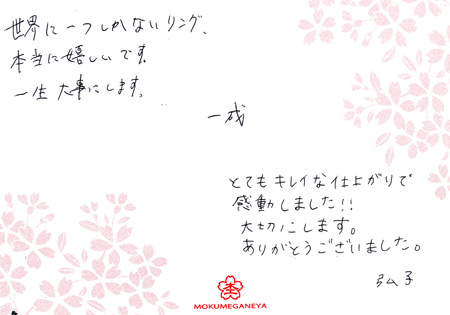 世界に一つしかないリング、
本当に嬉しいです。
一生大事にします。
一成
とてもキレイな仕上がりで
感動しました!!
大切にします。
ありがとうございました。
弘子
MOKUMEGANEYA